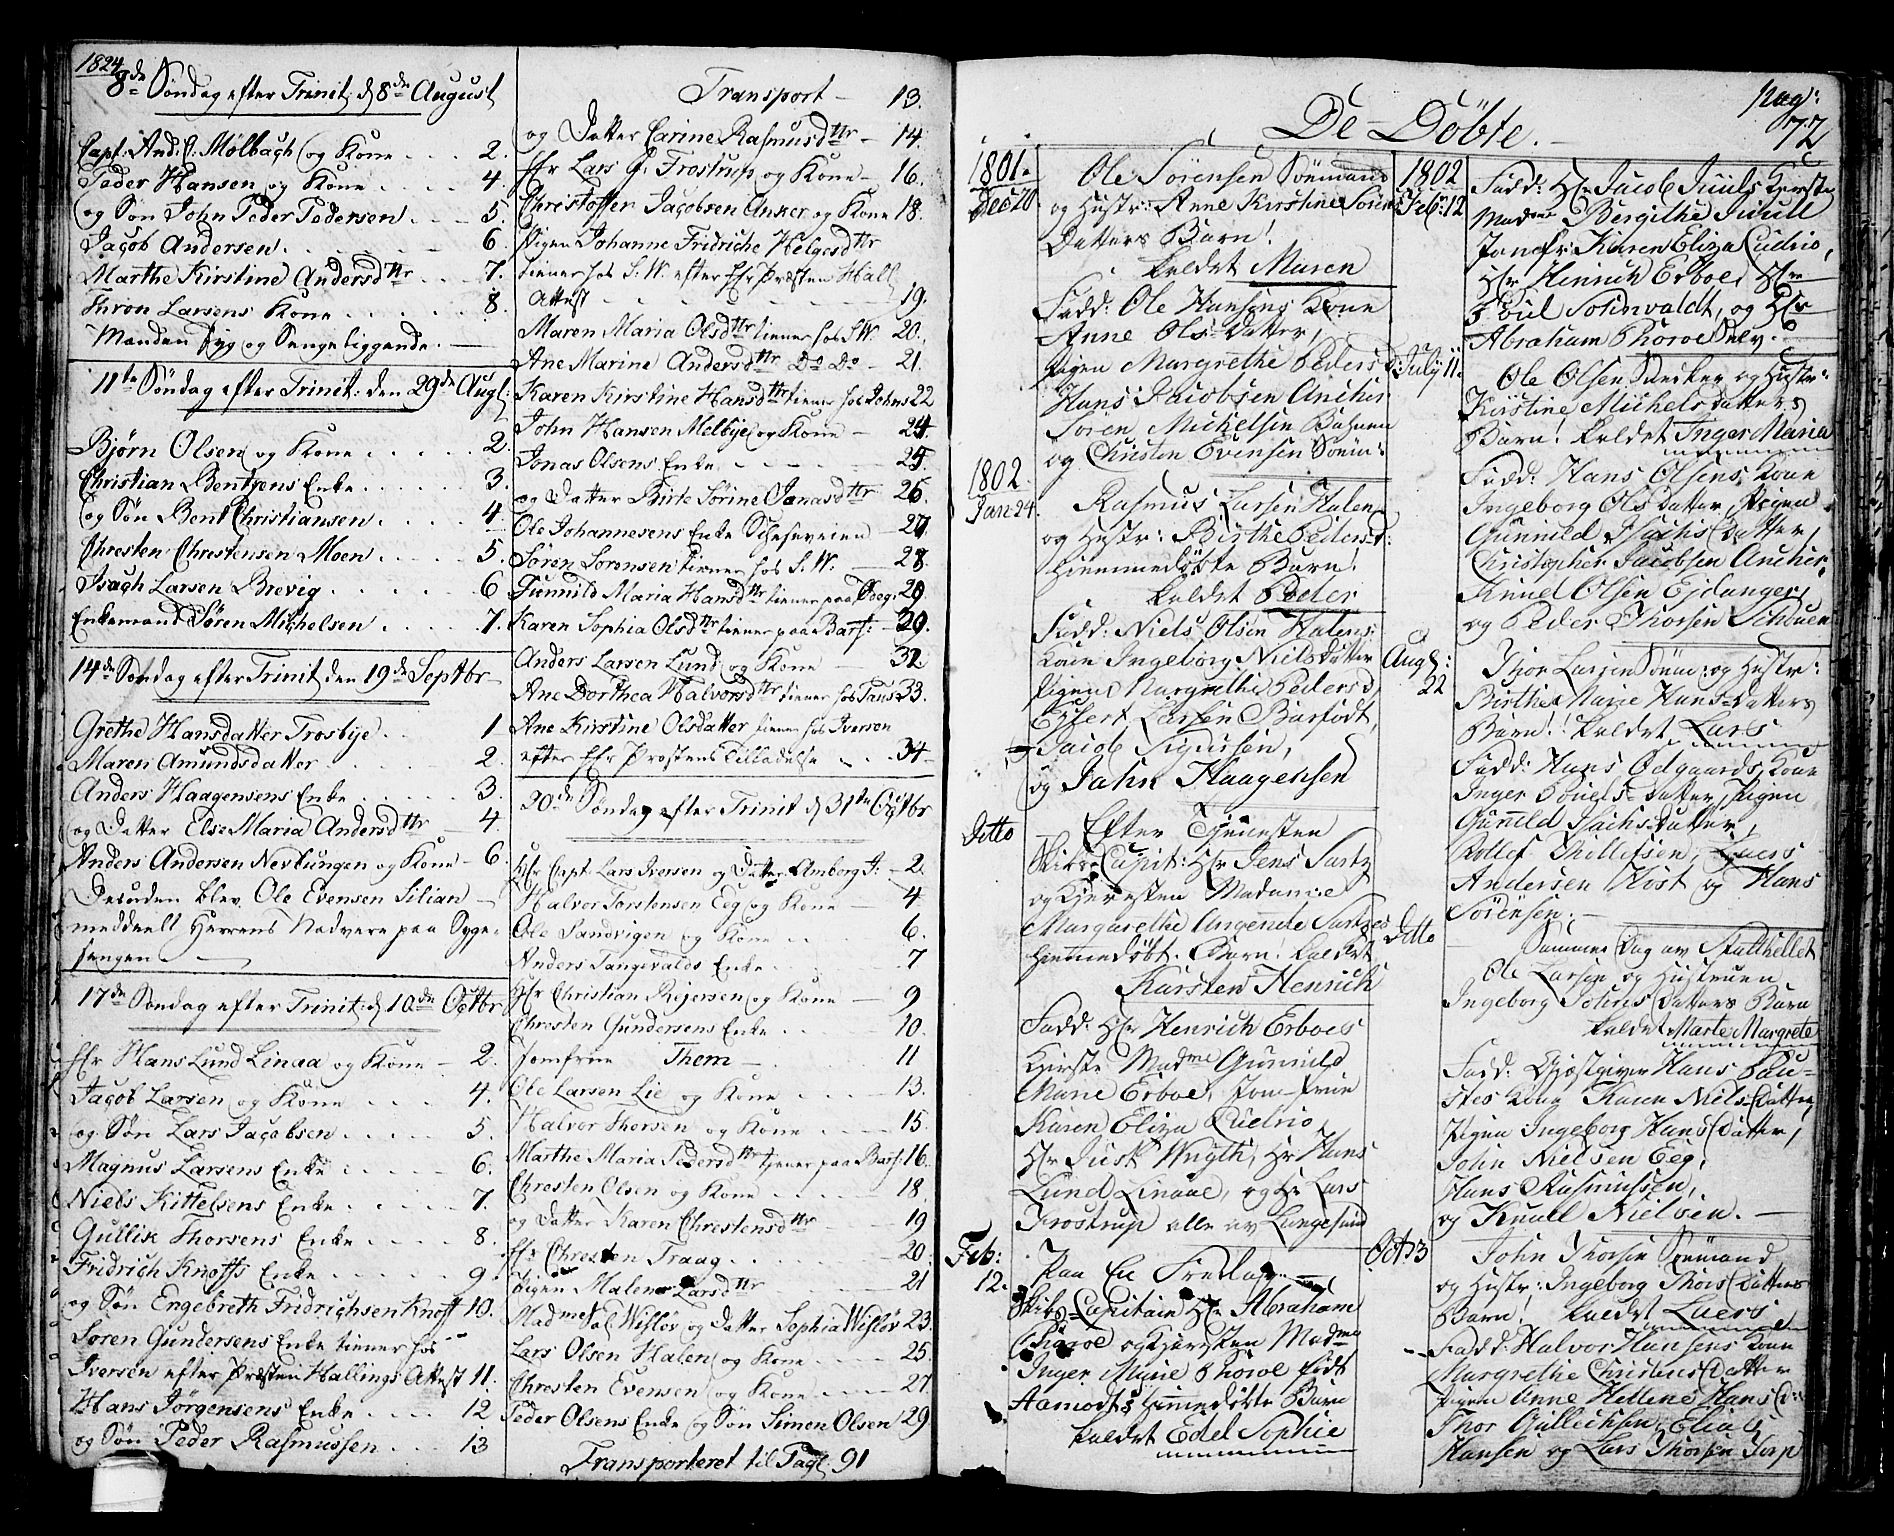 1824
8de Søndag efter Trinit: d 8de August
Capt: And: C: Mølbach og Kone . . . 2.
Peder Hansen og Kone . . . . 4.
og Søn John Peder Pedersen . . . . 5.
Jacob Andersen . . . . . . 6.
Marthe Kirstine Andersdttr . . . 7.
Thron Larsens Kone . . . . . . 8
Manden syg og Sengeliggende. —
11te Søndag efter Trinit: den 29de Augl:
Bjørn Olsen og Kone . . . . . 2.
Christian Bentzens Enke . . . . . . 3.
og Søn Bent Christiansen . . . . . 4
Chresten Chrestensen Moen . . . . . 5.
Isach Larsen Brevig . . . . . . 6
Enkemand Søren Michelsen . . . . 7.
14de Søndag efter Trinit den 19de Septbr
Grethe Hansdatter Trosbye . . 1
Maren Amundsdatter . . . . . 2.
Anders Haagensens Enke . . . . . 3.
og Datter Else Maria Andersdttr — 4.
Anders Andersen Nestungen og Kone — 6.
Desuden blev Ole Evensen Silian
meddeelt Herrens Nadvere paa Syge-
sengen —
17de Søndag efter Trinit: d 10de Octbr
Hr Hans Lund Linaa og Kone — 2.
Jacob Larsen og Kone . . . 4.
og Søn Lars Jacobsen . . . . . 5.
Magnus Larsens Enke . . . . . 6.
Niels Kittelsens Enke . . . . . 7.
Gullik Thorsens Enke . . . . 8.
Fridrich Knoffs Enke . . . . . 9.
og Søn Engebreth Fridrichsen Knoff 10.
Søren Gundersens Enke tiener hos
Iversen efter Præsten Hallings Attest 11.
Hans Jørgensens Enke . . . . 12
og Søn Peder Rasmussen . . . 13
Transport — 13.
og Datter Carine Rasmusdttr — 14.
Hr Lars G. Frostrup og Kone — 16.
Chrestoffer Jacobsen Anker og Kone 18.
Pigen Johanne Fridriche Helgesdttr
tiener hos S. W. efter Hr Præsten Hall
Attest — — — — 19.
Maren Maria Olsdttr tiener hos S. W. 20.
Ane Marine Andersdttr Do Do — 21.
Karen Kirstine Hansdttr tiener hos Johns 22
John Hansen Melbye og Kone — 24.
Jonas Olsens Enke — — — 25.
og Datter Birte Sørine Jonasdttr 26.
Ole Johannesens Enke — 27.
Søren Sørensen tiener hos S. W. — 28.
Gunnild Maria Hansdttr tiener paa 29
Karen Sophia Olsdtr tiener paa Barf: 30.
Anders Larsen Lund og Kone — 32.
Ane Dorthea Halvorsdttr tiener hos Paus 33.
Ane Kirstine Olsdatter tiener hos Iversen
efter Hr Præstens Tilladelse . . . 34.
20de Søndag efter Trinit d 31te Octbr
Hr Capt: Lars Iversen og Datter Amborg I: — 2.
Halvor Torstensen Eeg og Kone — 4
Ole Sandvigen og Kone . . . 6.
Anders Tangevalds Enke . . . . 7
Hr Christian Reiersen og Kone — 9
Chresten Gundersens Enke . . . 10.
Jomfrue Them — . . 11
Ole Larsen Lie og Kone . . . . 13.
Halvor Thorsen og Kone . . . . 15.
Marthe Maria Pedersdttr tjener paa Barf: 16.
Chresten Olsen og Kone . . . . 18.
og Datter Karen Chrestensdttr — 19
Hr Chresten Traag . . . . 20.
Pigen Malene Larsdttr . . . . 21
Madme Sal. Wisløv og Datter Sophia Wisløv 23.
Lars Olsen Halen og Kone . . . . 25.
Chresten Evensen og Kone . . . . 27
Peder Olsens Enke og Søn Simen Olsen 29
Transporteret til Pagl. 91
pag:
72
De Döbte.
1801.
Dec 20.
Ole Sörensen Sömand
og Hustr: Anne Kirstine Sörens
Datters Barn!
kaldet Maren
Fadd: Ole Hansens Kone
Anne Ols-Datter,
Pigen Margrethe Pedersd:
Hans Jacobsen Ancher
Sören Michelsen
og Christen Evensen Sömn:
1802.
Jan 24.
Rasmus Larsen Halen
og Hustr: Birthe Pedersd:
hiemmedöbte Barn!
kaldet Peder
Fadd: Niels Olsen Halens
Kone Ingeborg Nielsdatter
Pigen Margrethe Pedersd,
Eilert Larsen Barfödt,
Jacob Sigursen,
og Jahn Haagensen
Ditto
Efter Tjenesten
Skibs-Capit: Hr Jens Sartz
og Kjeresten Madame
Margarethe Angenete Sartzes
hiemmedöbt. Barn! kaldet
Karsten Henrich
Fadd: Hr Henrich Erboes
Kjerste Madme Gunnild
Marie Erboe, Jomfrue
Karen Eliza Cudrio,
Hr Just Wrigth, Hr Hans
Lund Linaae, og Hr Lars
Frostrup alle av Langesund
Feb:
12.
Paa En Fredag
Skibs-Capitain Hr Abraham
Thorve og Kjeresten Madme
Inger Marie Thorve födt
Aamodts hiemmedöbte Barn
kaldet Edel Sophie
1802
Feb: 12
Fadd: Hr Jacob Juuls Kjerste
Madme Bergithe Juull
Jomfr: Karen Eliza Cudrio,
Hr Henrich Erboe, Hr
Poul Sohnvaldt, og Hr
Abraham Thorve Selv.
July 11.
Ole Olsen Snecker og Hustr:
Kirstine Michelsdatters
Barn! kaldet Inger Maria
Fadd: Hans Olsens Kone
Ingeborg Olsdatter, Pigen
Gunnild Isachs Datter,
Christopher Jacobsen Ancher
Knud Olsen Ejdanger,
og Peder Thorsen Schouen
Augl:
22
Thor Larsen Sömn: og Hustr:
Birthe Marie Hans-Datters
Barn! kaldet Lars
Fadd: Hans Ödgaards Kone
Inger Pouels-Datter, Pigen
Gunild Isachs-Datter,
Rollef Thellefsen, Laers
Andersen Kost og Hans
Sörensen. —
Ditto
Samme Dag av Stathellet
Ole Larsen og Hustruen
Ingeborg Sörens Datters Barn
kaldet Marte Margrete
Fadd: Gjæstgiver Hans Pau-
stes Kone Karen Niels-Datter,
Pigen Ingeborg Hans Datter,
John Nielsen Eeg,
Hans Rasmussen,
og Knull Nielsen. —
Oct: 3
John Thorsen Sömand
og Hustr: Ingeborg Thors Datters
Barn! kaldet Laers
Fadd: Halvor Hansens Kone
Margrethe Christens Datter
Pigen Anne Hellene Hans D:
Thor Gullichsen, Elias
Hansen og Lars Thorsen Torp